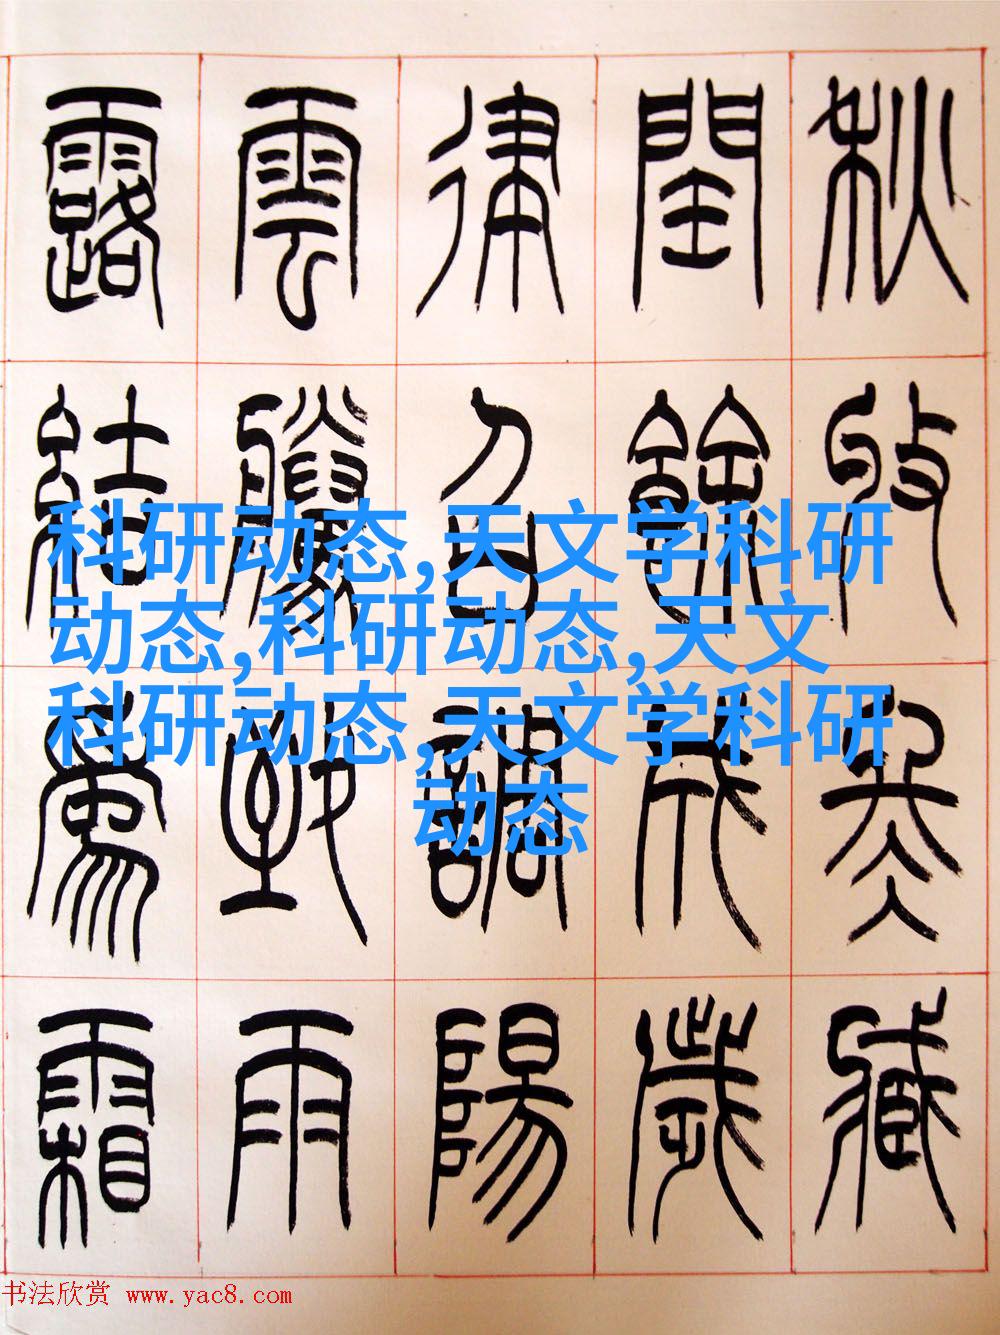 秋收冬臧
閏餘成歲
律召調陽
雲騰致雨
露結爲霜
科研动态,天文学科研
动态,科研动态,天文
科研动态,天文学科研
动态
书法欣赏 www.yac8.com